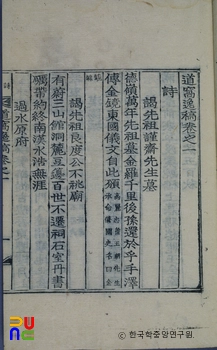 道窩逸稿卷之一
詩
謁先祖謹齋先生墓
德嶺萬年先祖墓金羅千里後孫還於乎手澤
傳金鏡東國儀文自此
謁先祖良度公不祧廟
有蔚三山館洞麓豆籩百世不遷祠石室丹書
礪帶約終南漢水浩無涯
過水原府
道窩逸稿卷之一
詩
PUNC
한국학중앙연구원